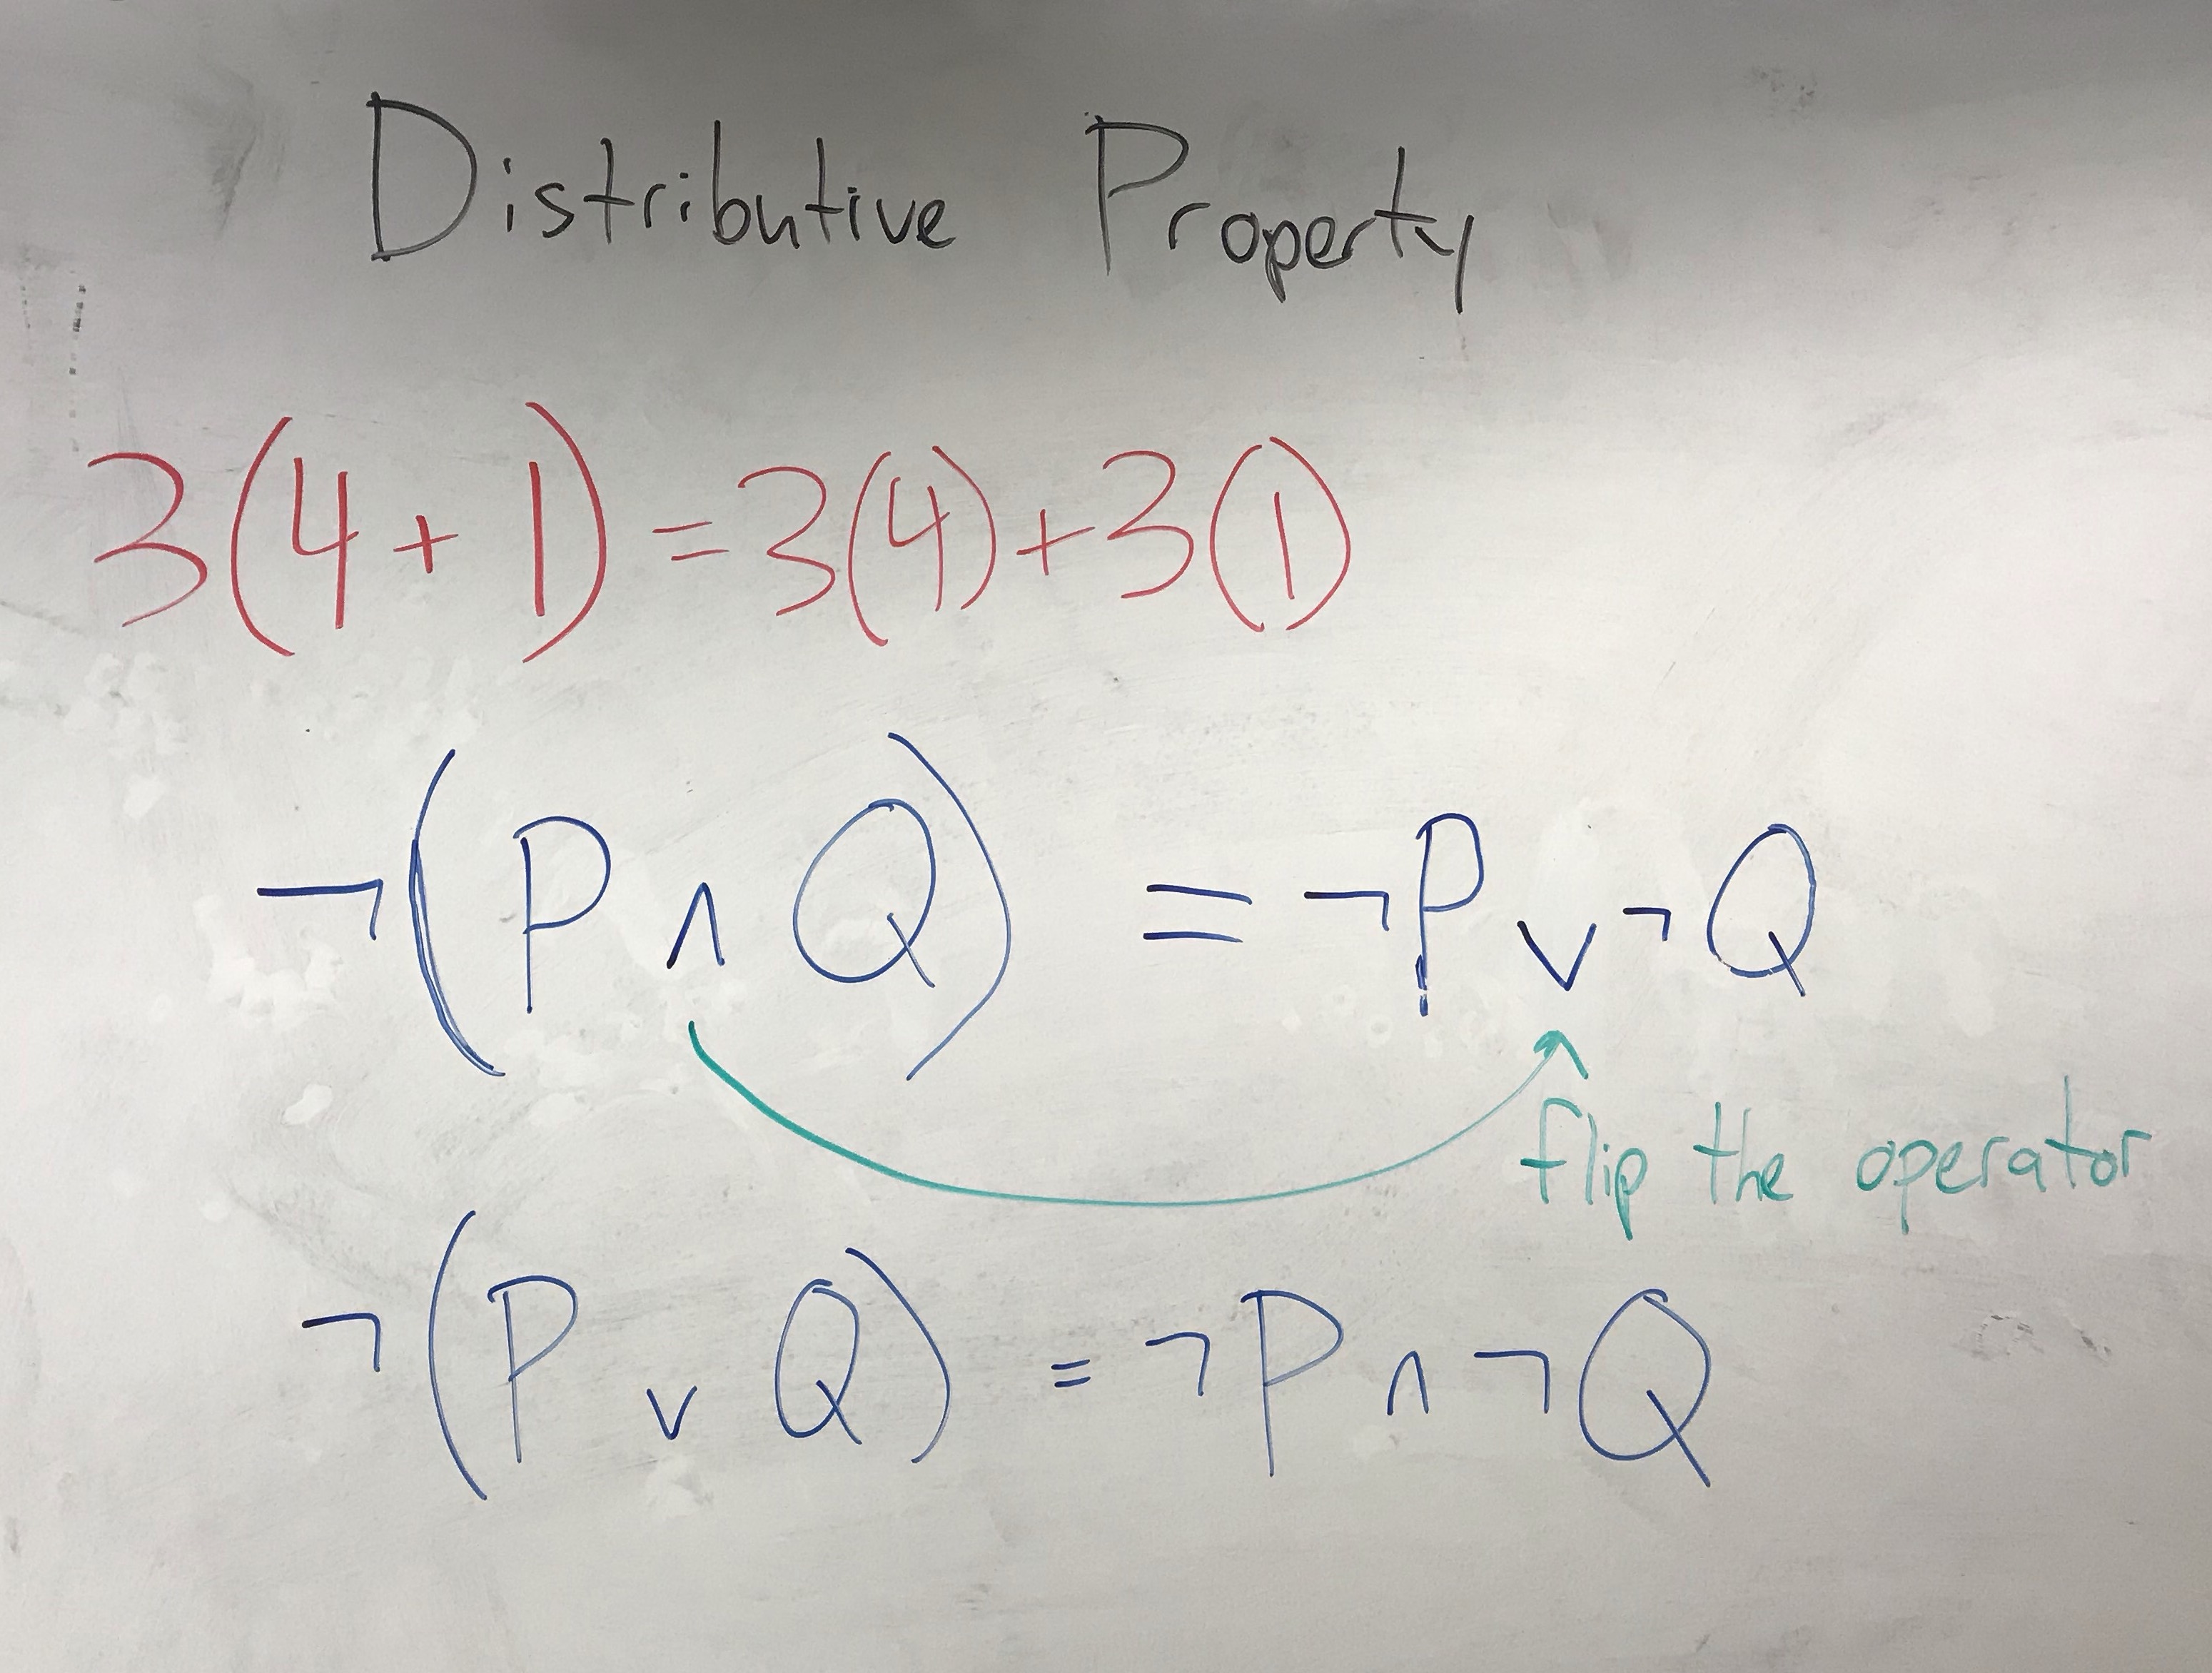 Distributive Property
3(4+1)=3(4)+3(1)
¬(P∧Q) = ¬P∨¬Q
flip the operator
¬(P∨Q) = ¬P∧¬Q